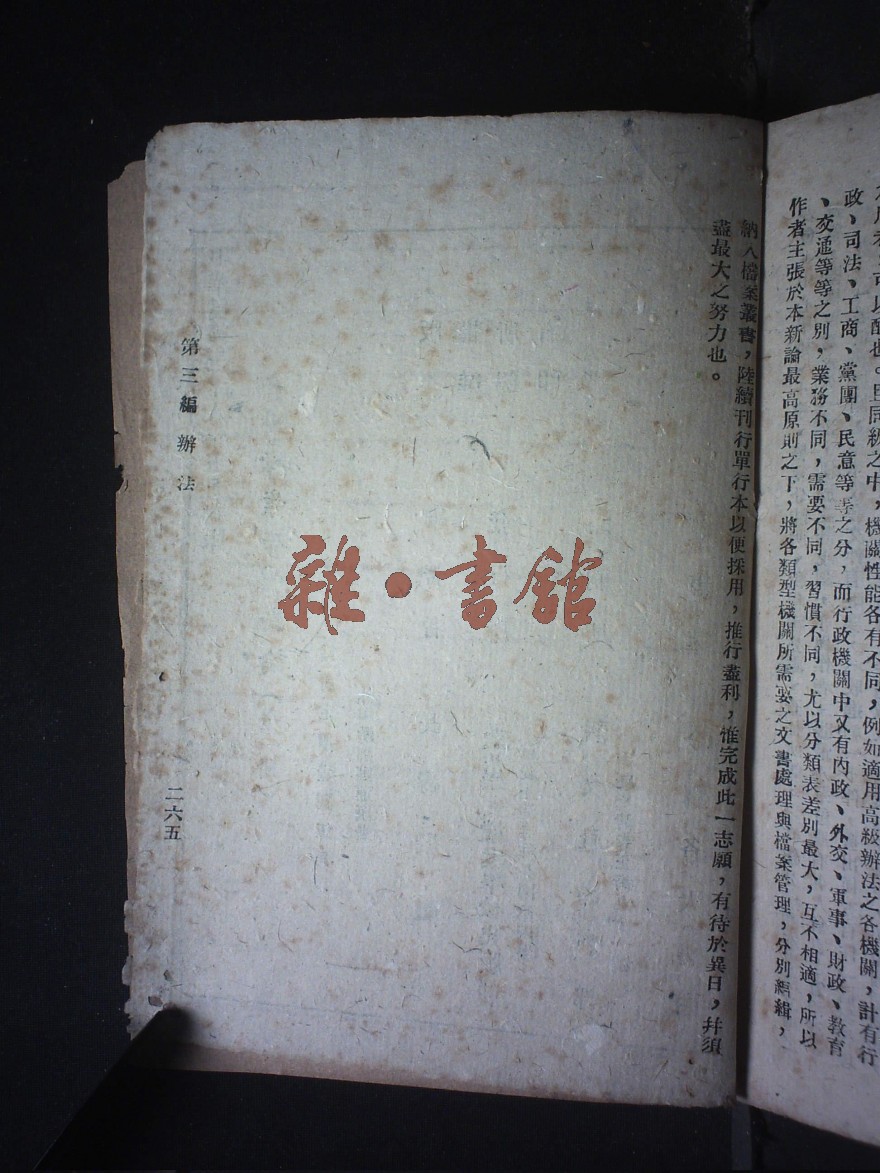 政、司法、工商、黨團、民意等等之分，而行政機關中又有內政、外交、軍事、財政、教育
、交通等等之別，業務不同，需要不同，習慣不同，尤以分類表差別最大，互不相適，所以
作者主張於本新論最高原則之下，將各類型機關所需要之文書處理與檔案管理，分別編緝，
納入檔案叢書，陸續刊行單行本以便採用，推行盡利，惟完成此一志願，有待於異日，幷須
盡最大之努力也。
第三編 辦法
二六五
雜·書館